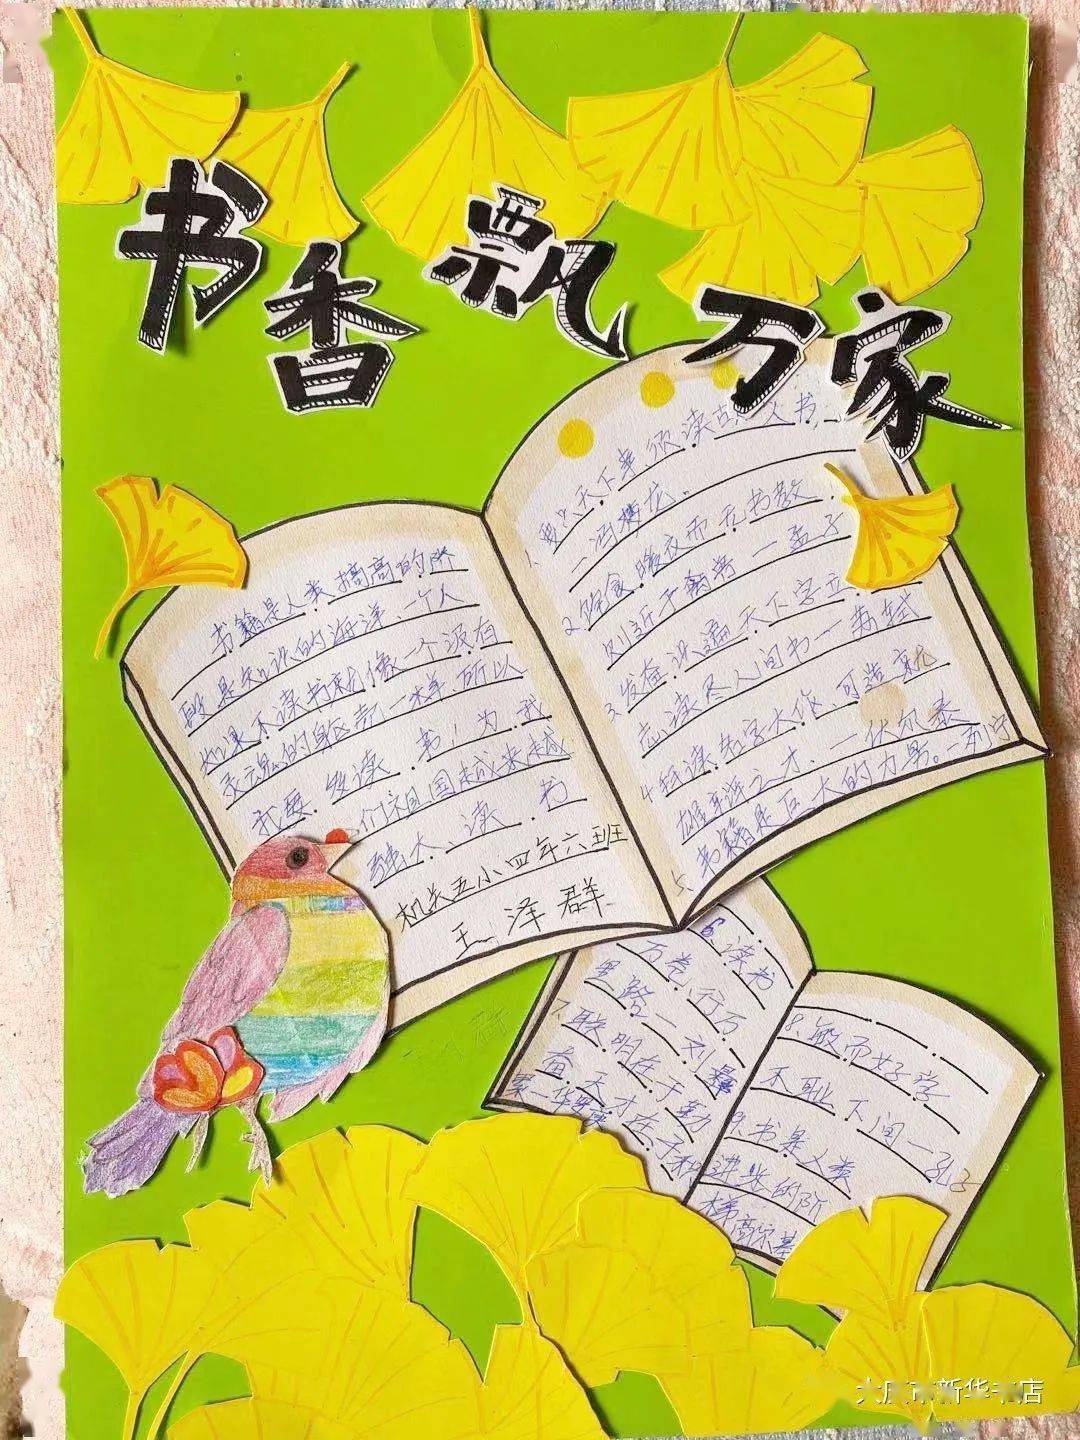 书香飘万家
书籍是人类提高的阶
段是知识的海洋、一个人
如果不读书就像一个没有
灵魂的躯壳一样、所以
我要 读 书！为 我
们祖国越来越
强大、读 书
机关五小四年六班
王泽群
1、要 天下事须读古 书,
2、饱食、暖衣而无书教,
则近于禽兽一孟子
3、发奋识遍天下字立
志读尽人间书一苏轼
4、 读 大作、可造就
雄 之才、一伏尔泰
5、书籍是巨大的力男。一列宁
6、读书
万卷、行万
里路一刘彝
7、聪明在于勤
奋、天才在于积
8、敏而好学
不耻下问一孔子
9、书是人类
进步的阶
梯高尔基
大庆市新华书店